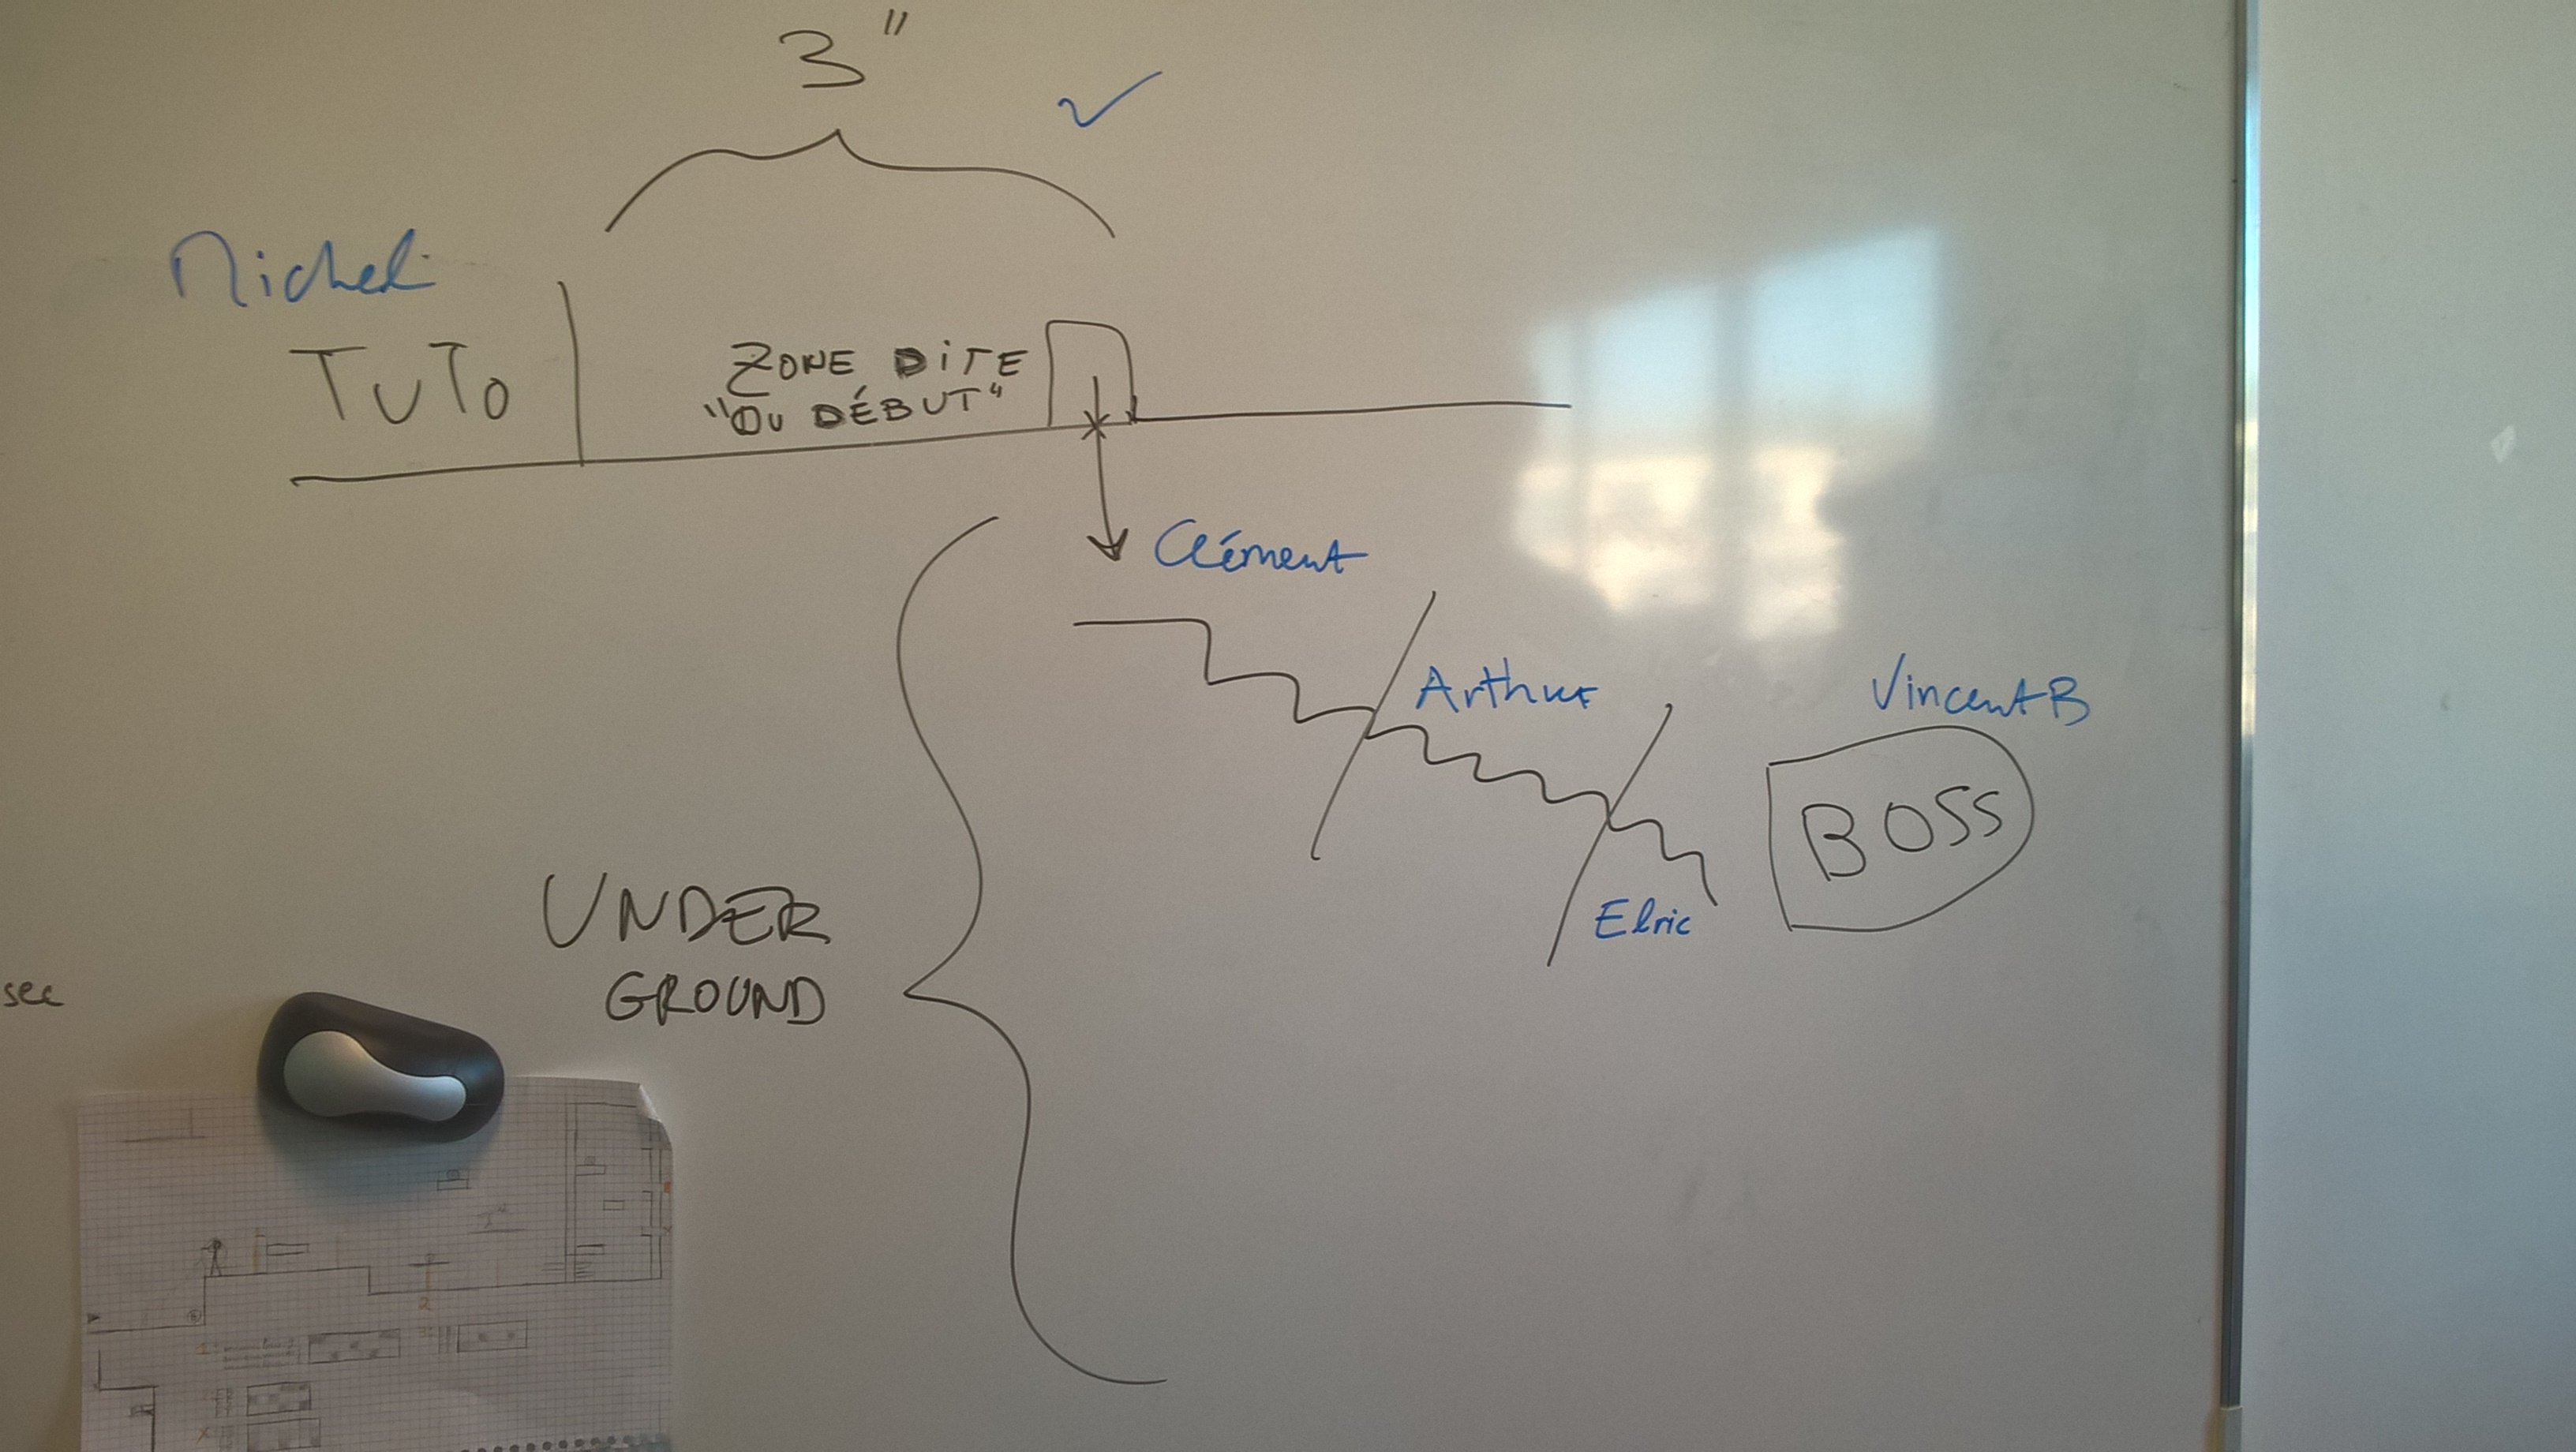 3"
Michel
TUTO
ZONE DITE
"DU DÉBUT"
Clément
Arthur
Vincent B
BOSS
Elric
UNDER
GROUND
sec